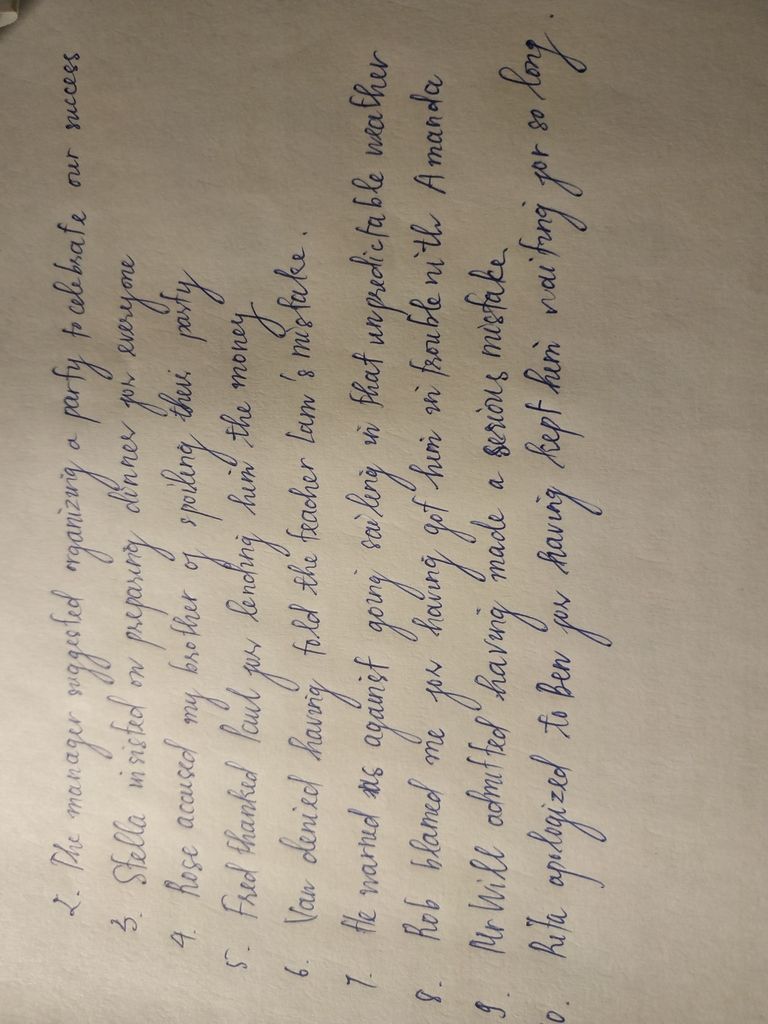 2. The manager suggested organizing a party to celebrate our success
3. Stella insisted on preparing dinner for everyone
4. Rose accused my brother of spoiling their party
5. Fred thanked Paul for lending him the money
6. Van denied having told the teacher Lam's mistake.
7. He warned us against going sailing in that unpredictable weather
8. Rob blamed me for having got him in trouble with Amanda
9. Mr Will admitted having made a serious mistake.
0. Rita apologized to Ben for having kept him waiting for so long.